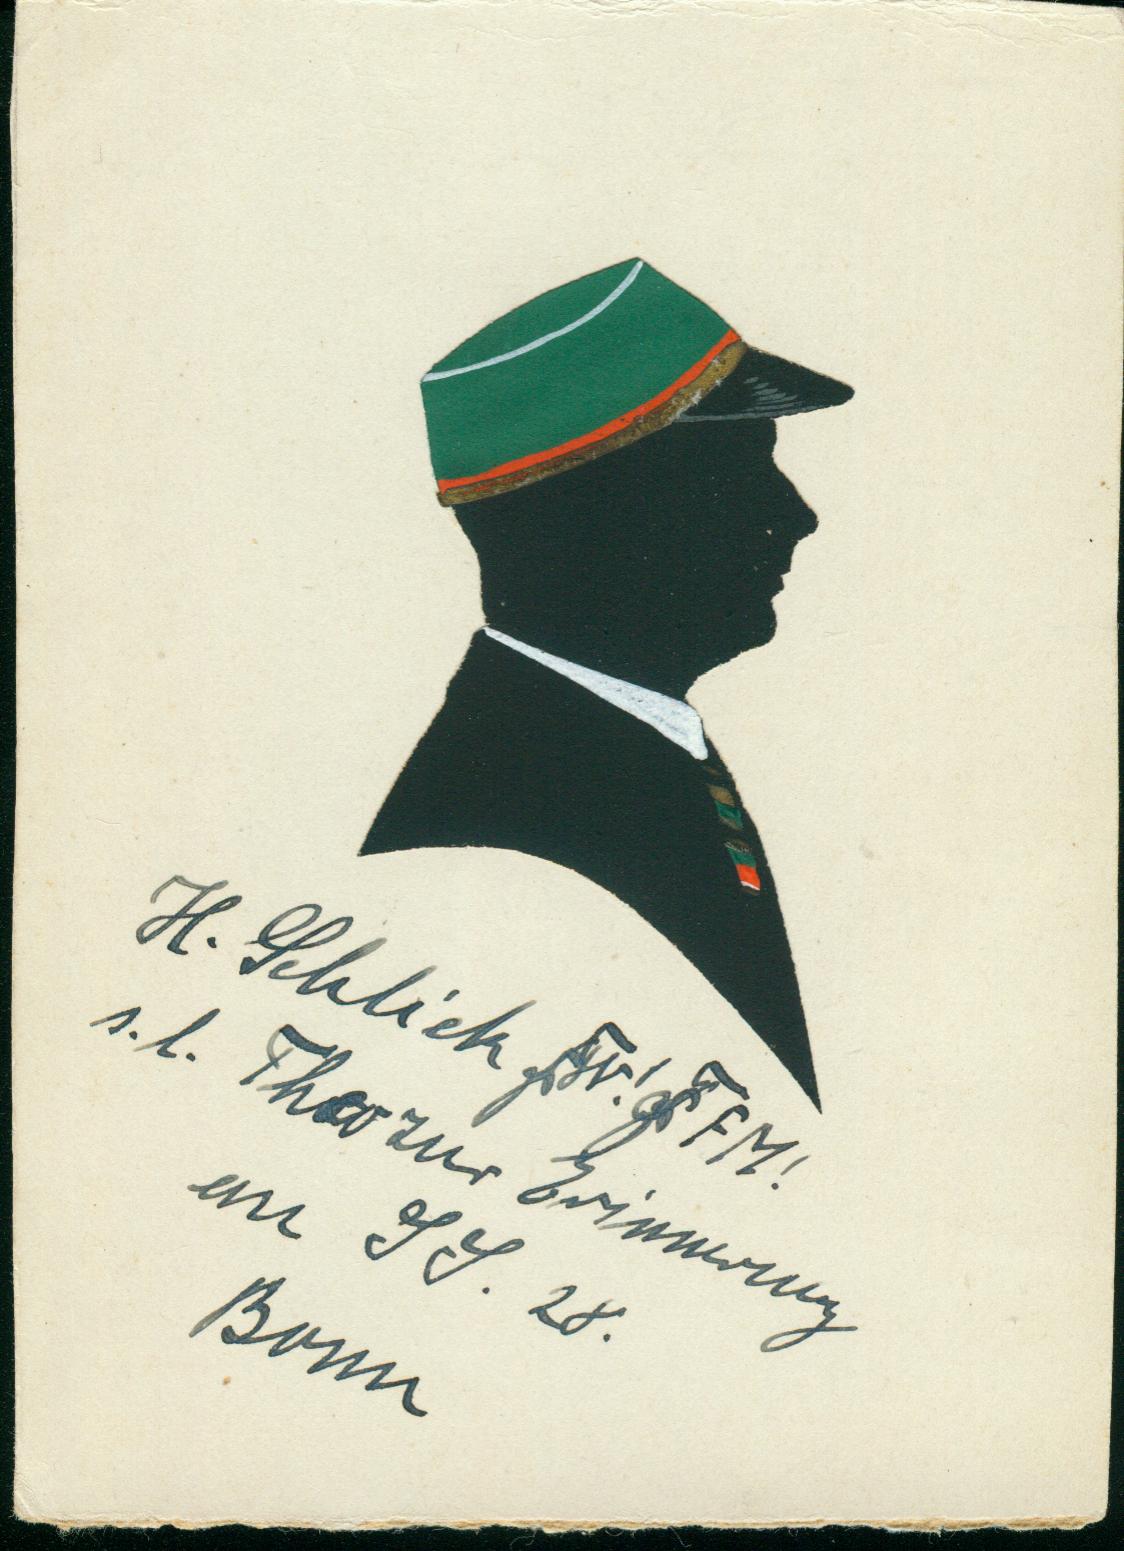 H. Schlick FM!
s. l. Thar zur Erinnerung
an SS. 28.
Bonn